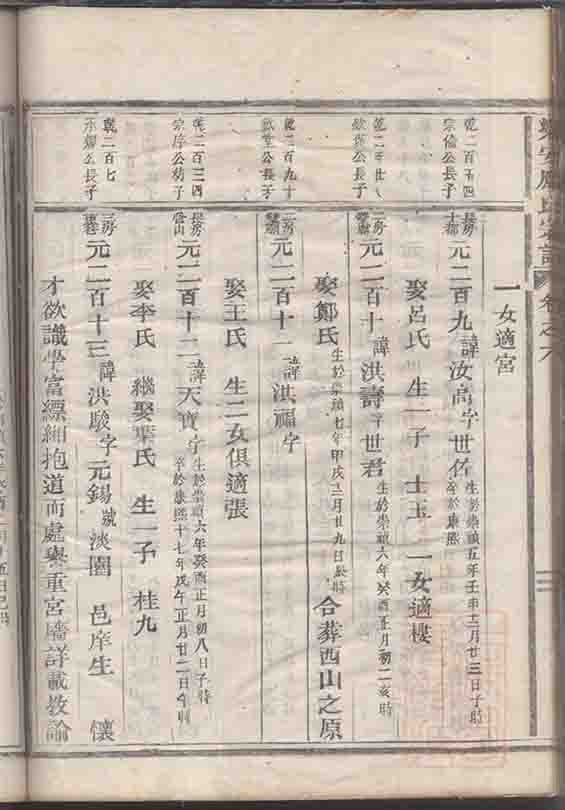 一女適宮
乾二百五四
宗倫公長子
長房
元二百九 諱汝高 字世佐 生於崇禎五年壬申十二月廿三日子時
卒於康熙
娶呂氏 生一子 士玉 一女適樓
公長子
二房
元二百十 諱洪壽 字世君 生於崇禎六年癸酉正月初二亥時
娶鄭氏 生於崇禎七年甲戌三月廿九日辰時 合葬西山之原
乾二百九十
公長子
元二百十一 諱洪福 字
娶王氏 生二女俱適張
乾二百三四
宗序公幼子
長房
元二百十二 諱天寶 字 生於崇禎六年癸酉正月初八日子時
卒於康熙十七年戊午正月廿二日午時
娶李氏 繼娶葉氏 生一子 桂九
乾二百七
公長子
二房
元二百十三 諱洪駿 字元錫 號淡園 邑庠生 懷
才欲識學富縹緗抱道而處譽重宮牆詳載教諭